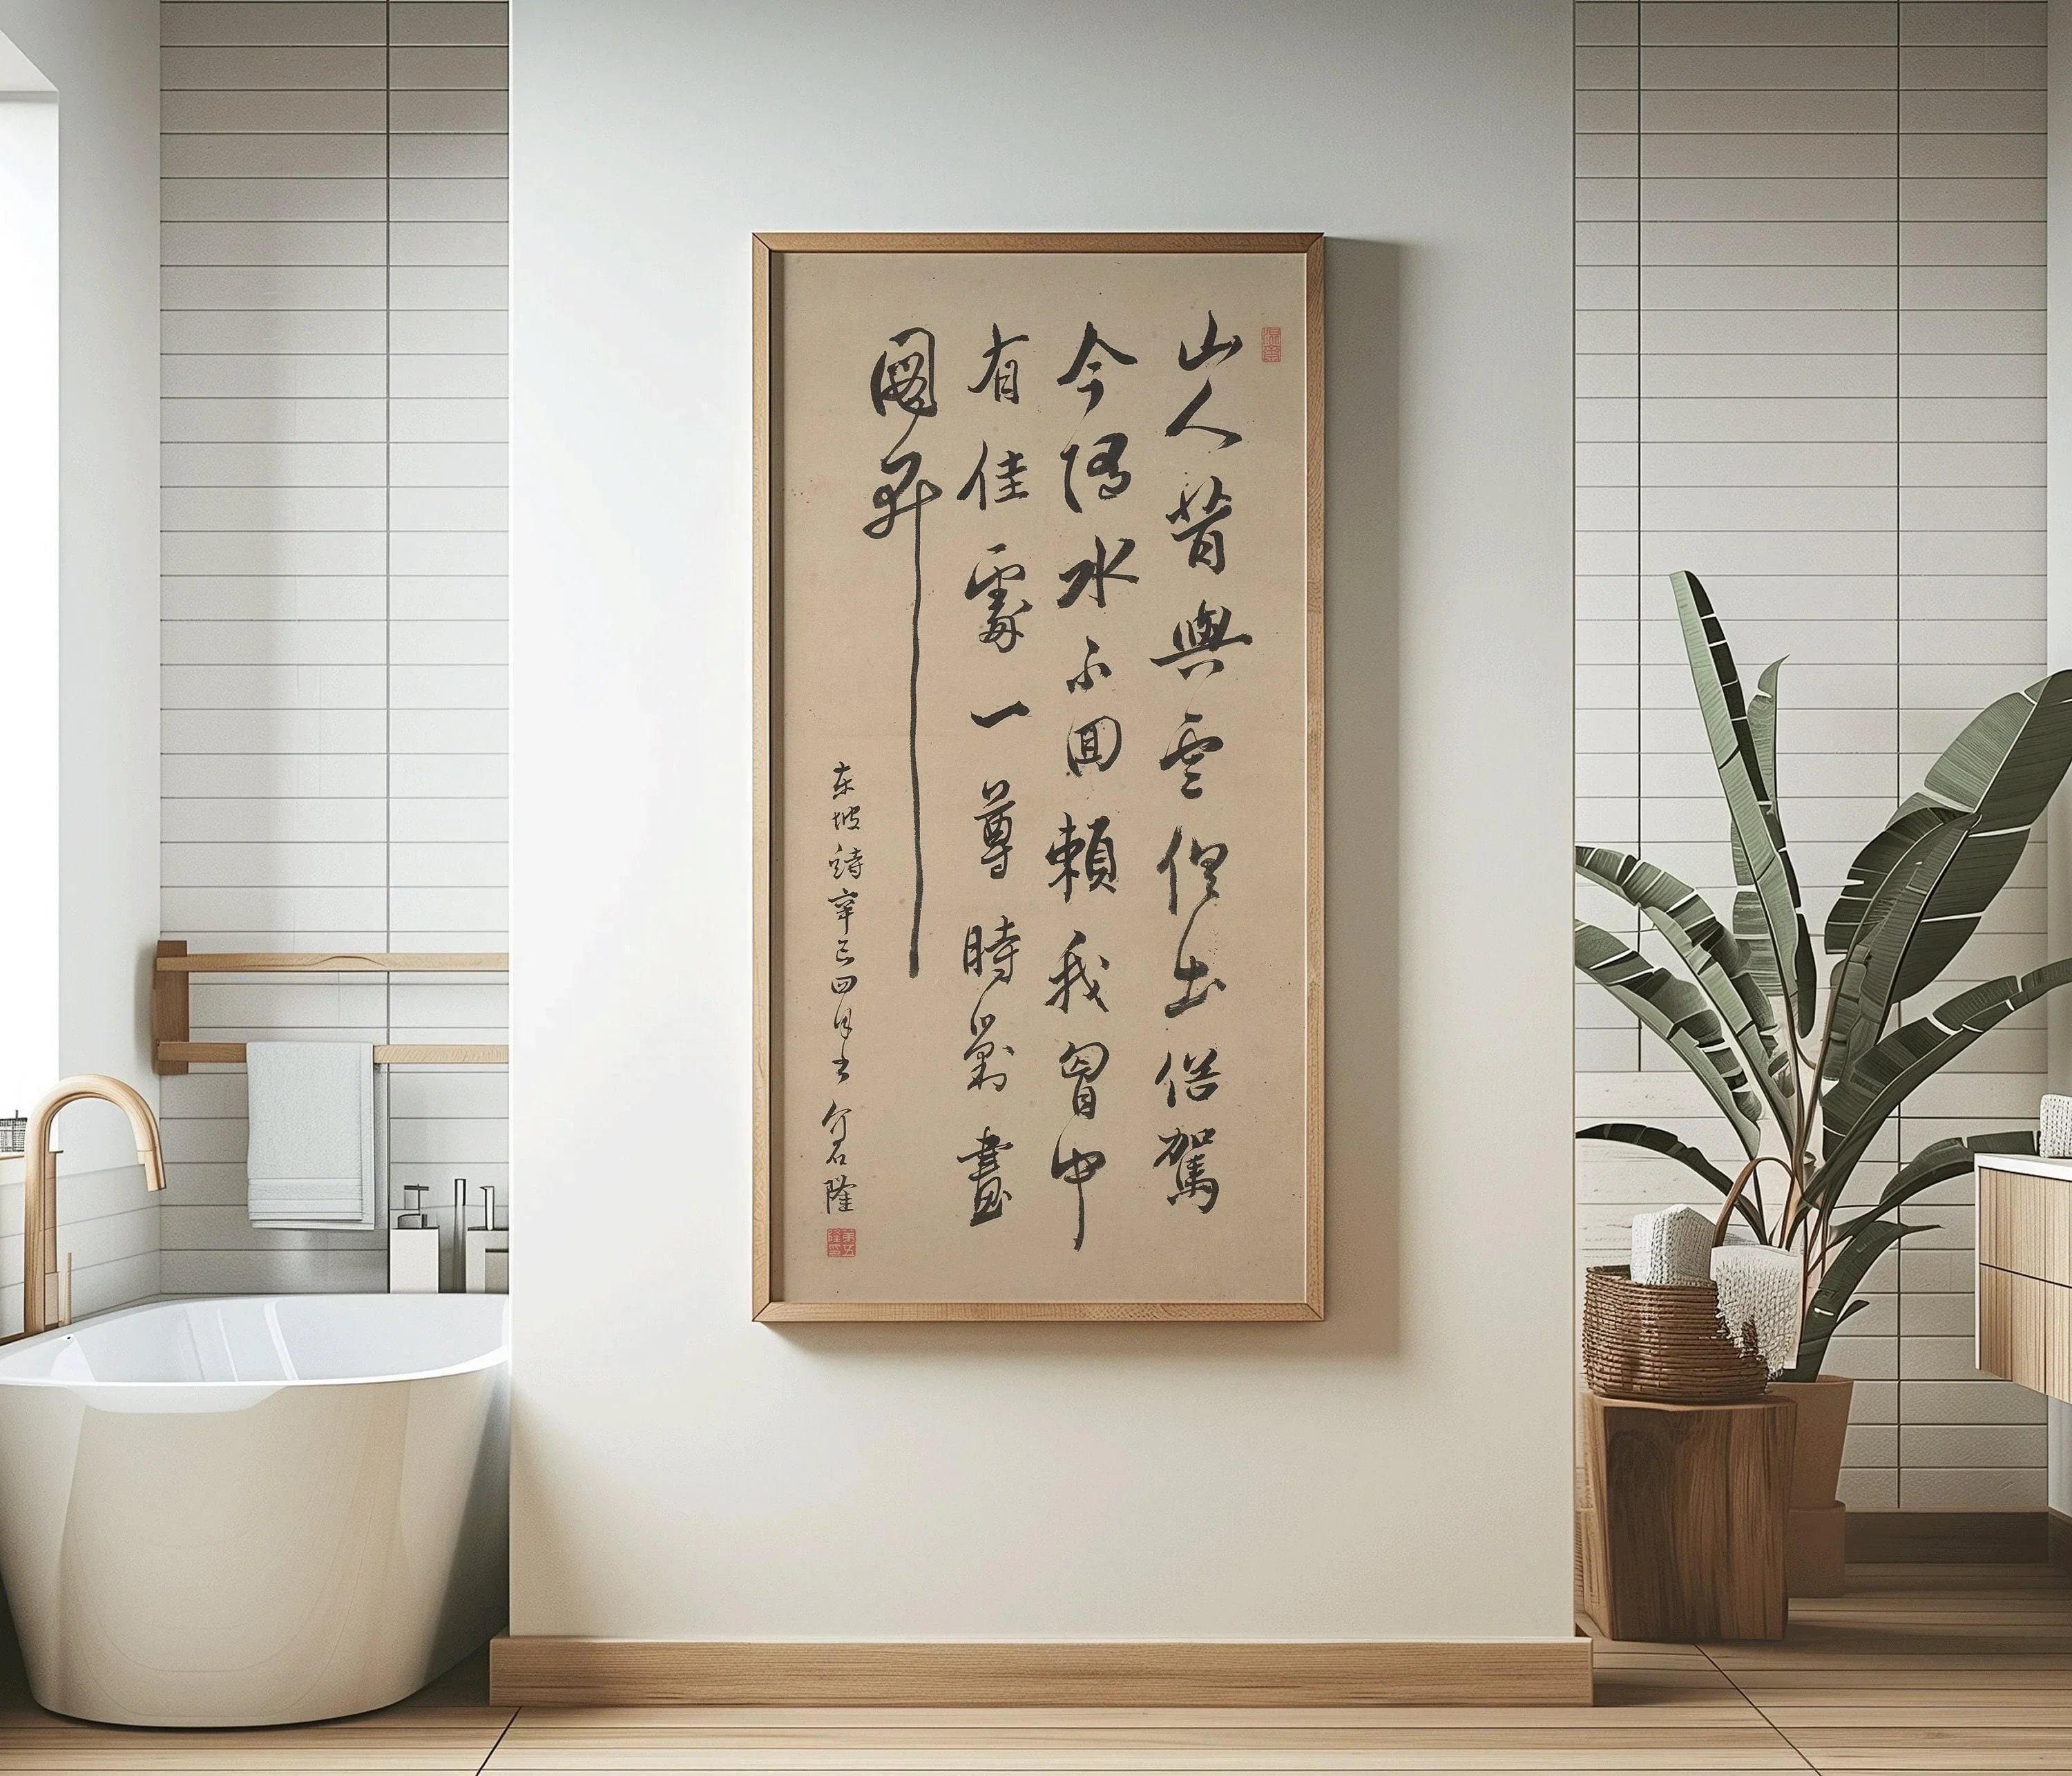 山人昔與雲俱出俗駕
今隨水不回賴我胷中
有佳處一尊時對畫
圖開
東坡詩辛巳四月書 石隆